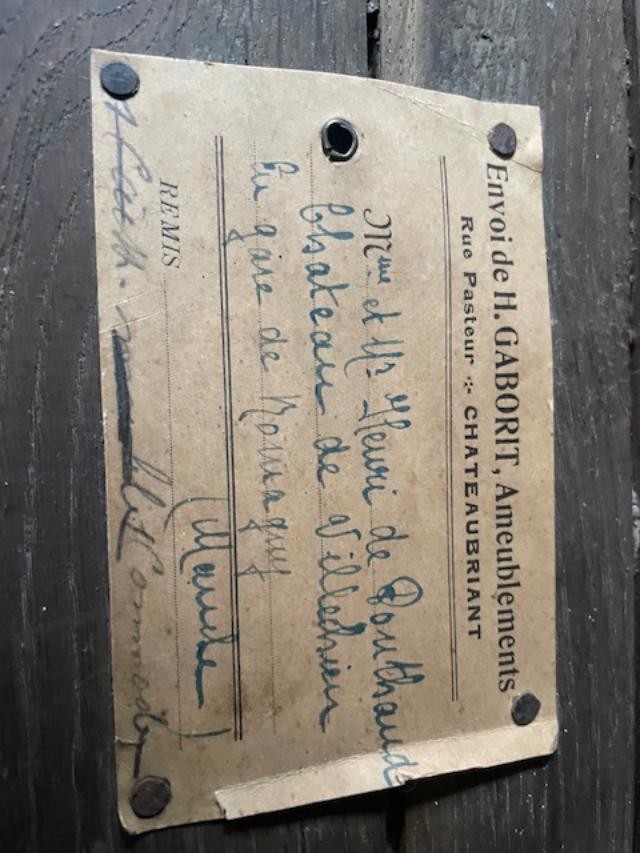 Envoi de H. GABORIT, Ameublements
Rue Pasteur CHATEAUBRIANT
Mme et Mr Henri de
Chateau de Villechien
En gare de Romagny
(Manche)
REMIS